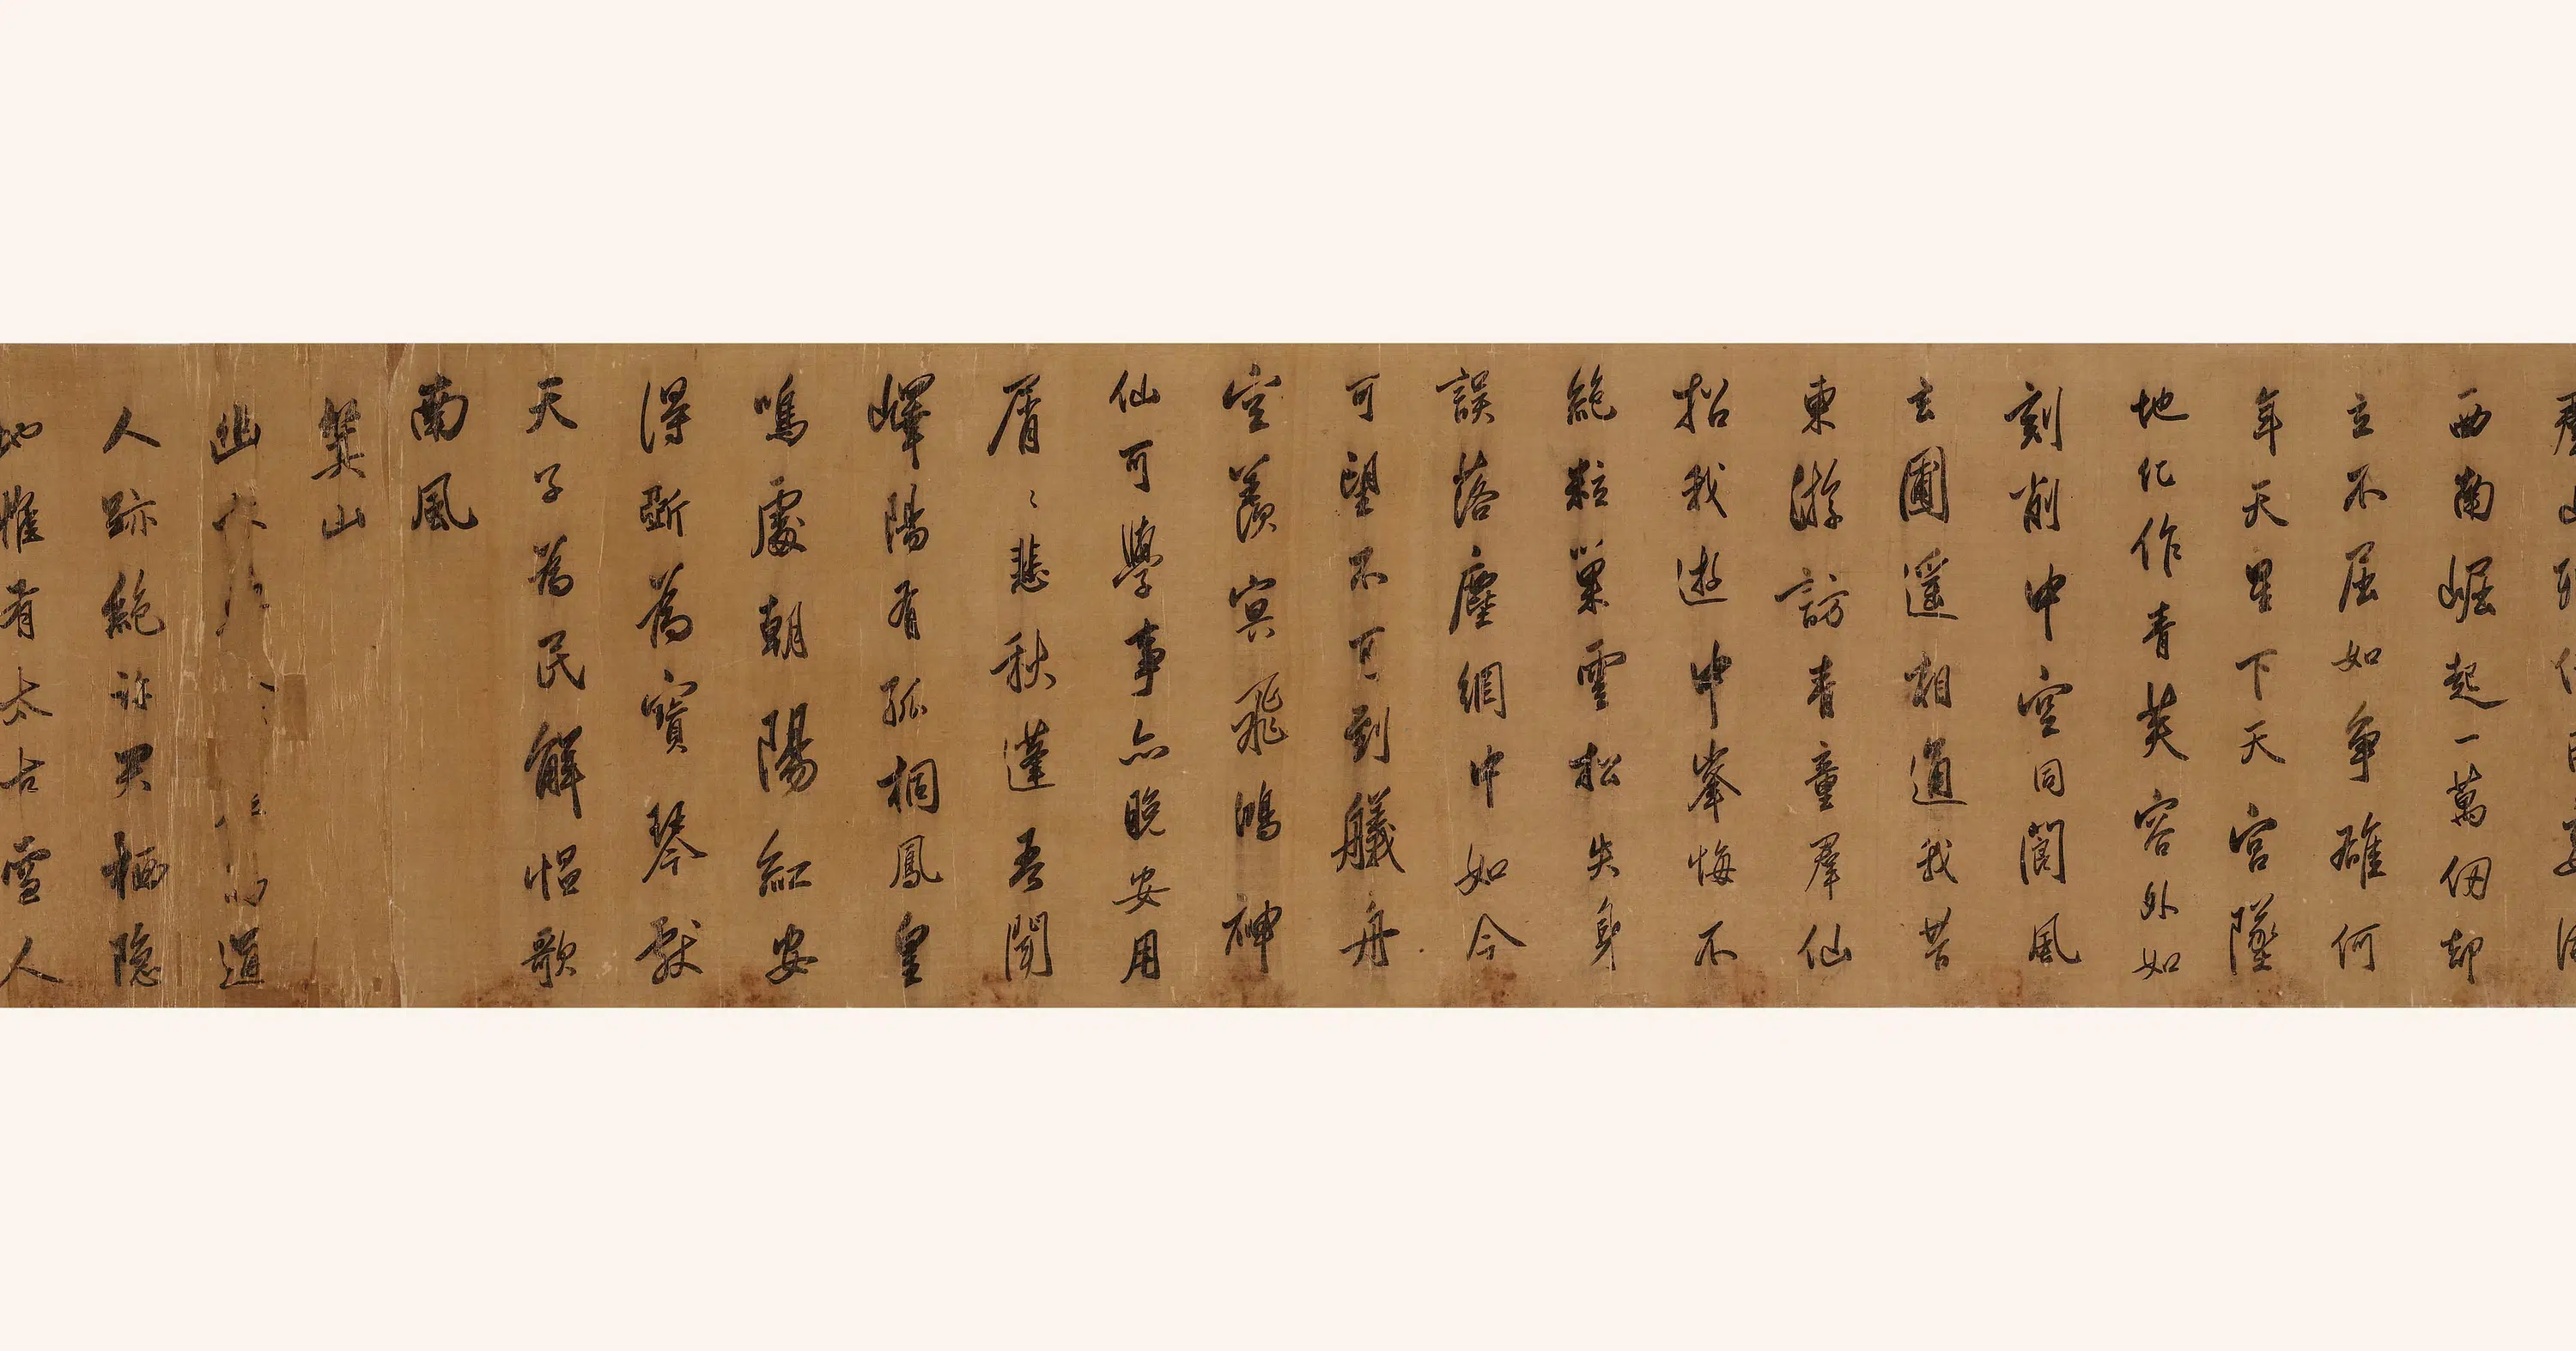 西南崛起一萬仞却
立不屈如爭雄何
年天星下天宮墜
地化作青芙容外如
刻削中空同閬風
玄圃遥相通我昔
東游訪青童羣仙
招我遊中峯悔不
絶粒巢雲松失身
誤落塵網中如今
可望不可到艤舟
空羨冥飛鴻神
仙可學事亦晚安用
屑〻悲秋蓬吾聞
嶧陽有孤桐鳳皇
鳴處朝陽紅安
得斲為寳琴獻
天子為民解愠歌
南風
龔山
幽 道
人跡絶 栖隐
地惟有太古雪人